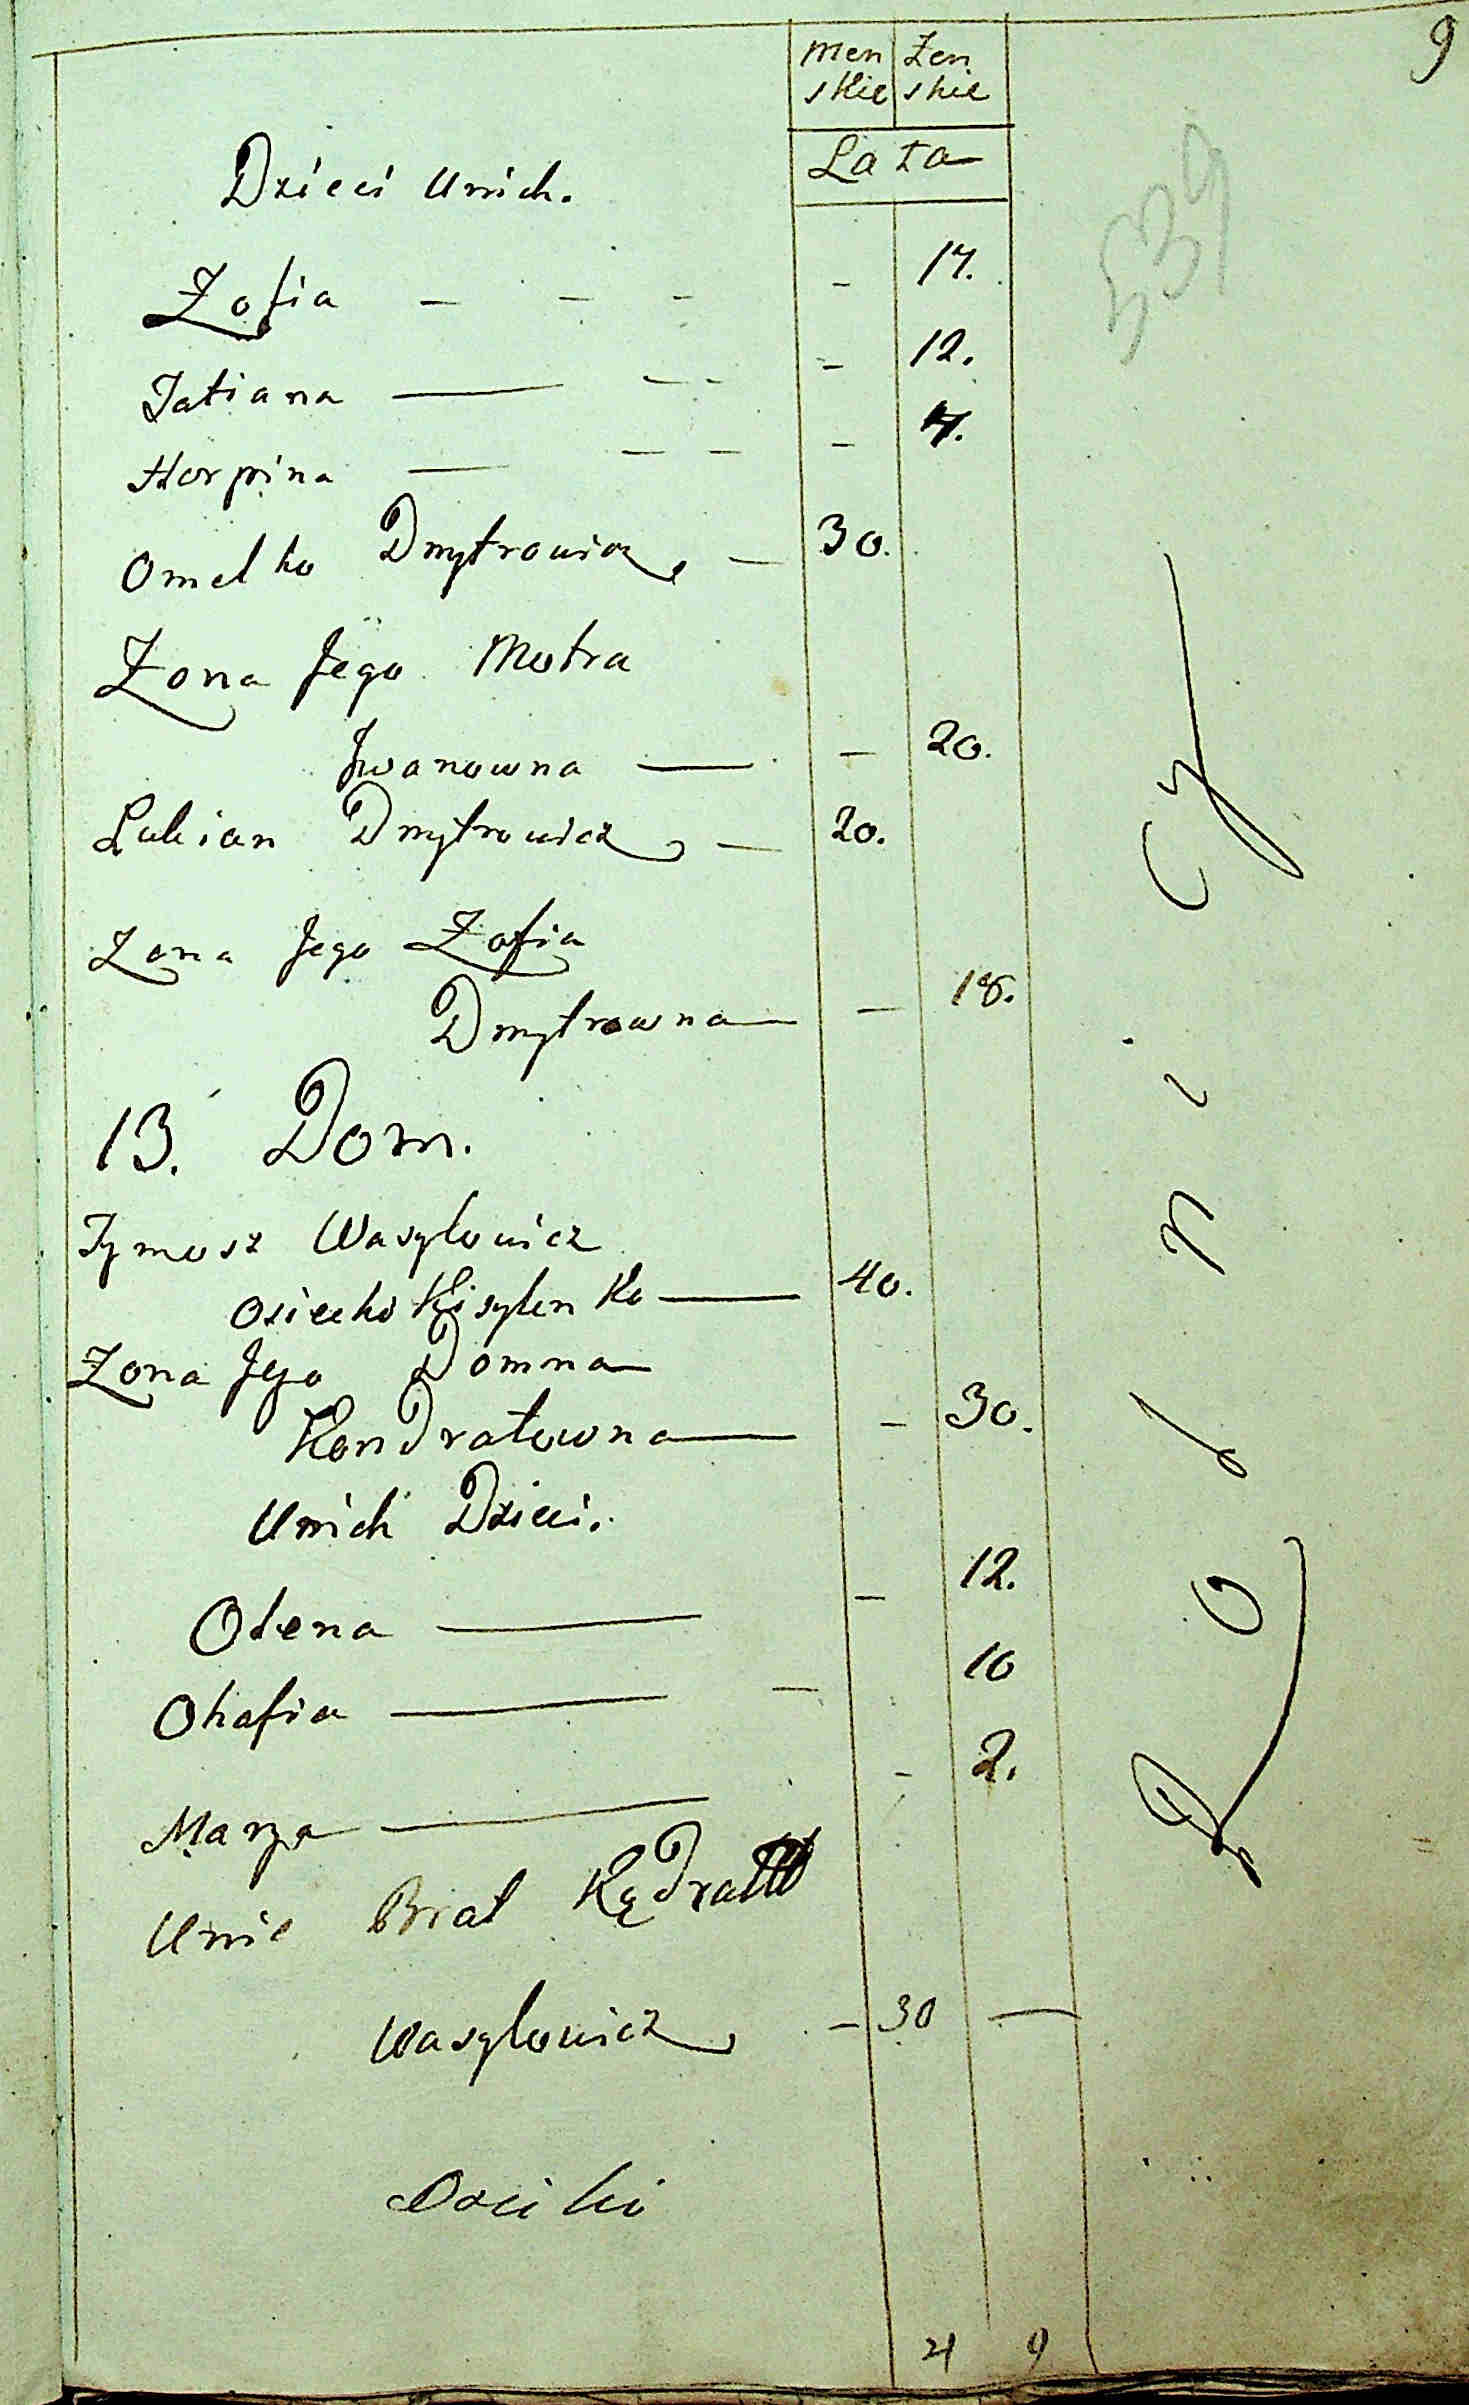 9
Men Zen
skie skie
Lata
539
Dzieci unich.
Zofia - - - - 17.
Tatiana - - - - 12.
Horpina - - - - 7.
Omelko Dmytrowicz - 30.
Zona Jego Motra
Iwanowna - - 20.
Lukian Dmytrowicz - 20.
Zona Jego Zofia
Dmytrowna - 18.
13. Dom.
Tymosz Wasylowicz
Kisylenko - 40.
Zona Jego Domna
Kondratowna - - 30.
Unich Dzieci.
Olena - - 12.
Ohafia - - 10
Marya - - 2.
Unie Brat Kędrat
Wasylowicz - 30 -
4 9
Rolnicy